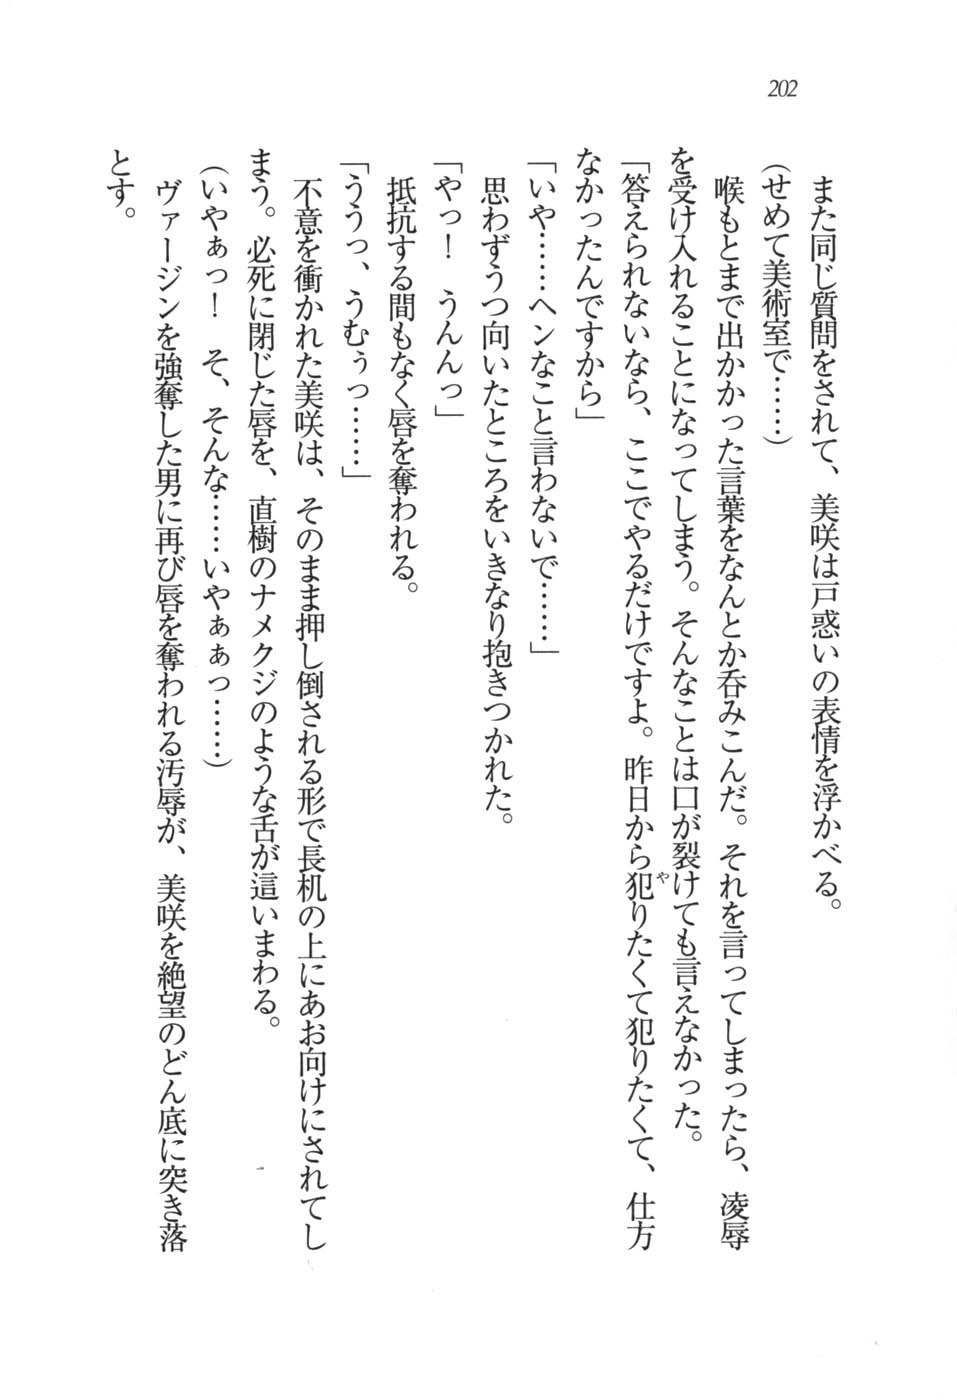 202
また同じ質問をされて、美咲は戸惑いの表情を浮かべる。
（せめて美術室で……）
喉もとまで出かかった言葉をなんとか呑みこんだ。それを言ってしまったら、凌辱
を受け入れることになってしまう。そんなことは口が裂けても言えなかった。
「答えられないなら、ここでやるだけですよ。昨日から犯りたくて犯りたくて、仕方
や
なかったんですから」
「いや……ヘンなこと言わないで……」
思わずうつ向いたところをいきなり抱きつかれた。
「やっ！　うんんっ」
抵抗する間もなく唇を奪われる。
「ううっ、うむぅっ……」
不意を衝かれた美咲は、そのまま押し倒される形で長机の上にあお向けにされてし
まう。必死に閉じた唇を、直樹のナメクジのような舌が這いまわる。
（いやぁっ！　そ、そんな……いやぁぁっ……）
ヴァージンを強奪した男に再び唇を奪われる汚辱が、美咲を絶望のどん底に突き落
とす。